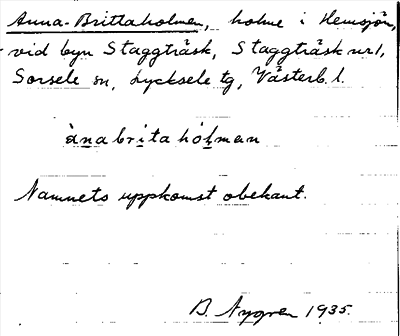 Anna-Brittaholmen, holme i Hemsjön,
vid byn Staggträsk, Staggträsk nr 1,
Sorsele sn, Lycksele tg, Västerb. l.
ànabrita hólman
Namnets uppkomst obekant.
B. Nygren 1935.